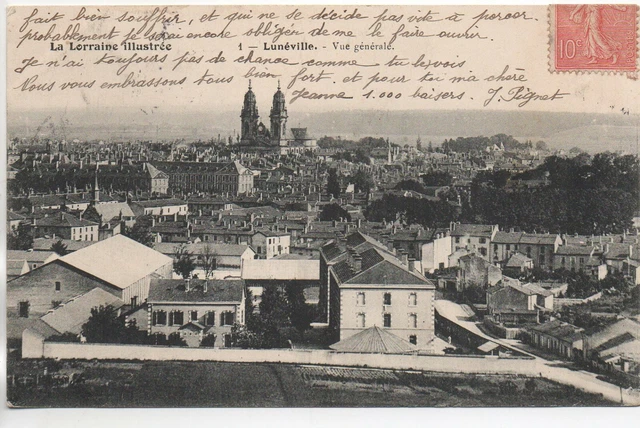 fait bien souffrir, et qui ne se décide pas vite à percer
probablement je serai encore obligée de me le faire ouvrir
La Lorraine illustrée 1 — Lunéville. — Vue générale.
10c
Je n'ai toujours pas de chance comme tu le vois
Nous vous embrassons tous bien fort, et pour toi ma chère
Jeanne 1.000 baisers. J. Pignet